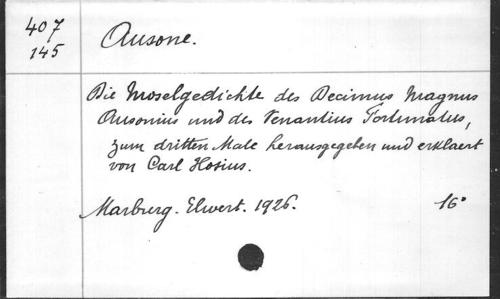 407
145
Ausone.
Die Moselgedichte des Decimus Magnus
Ausonius und des Venantius Fortunatus,
zum dritten Male herausgegeben und erklaert
von Carl Hosius.
Marburg. Elwert. 1926. 16°